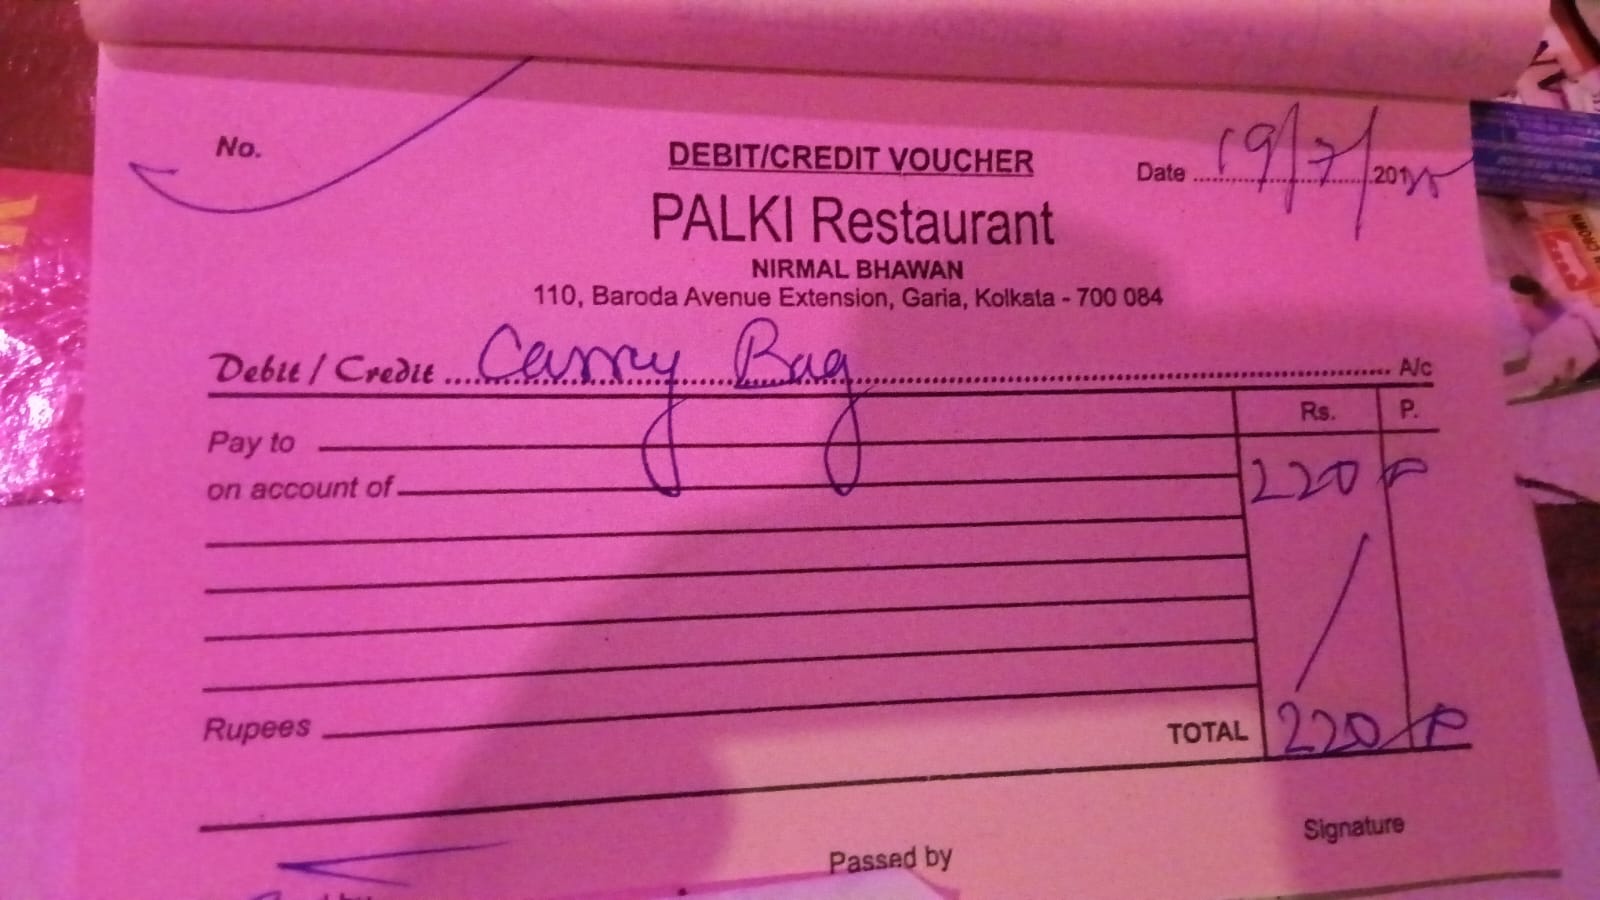 No.
DEBIT/CREDIT VOUCHER
Date 19/7/201
PALKI Restaurant
NIRMAL BHAWAN
110, Baroda Avenue Extension, Garia, Kolkata - 700 084
Debit / Credit Carry Bag A/c
Rs. P.
Pay to
on account of 220
Rupees TOTAL 220
Signature
Passed by